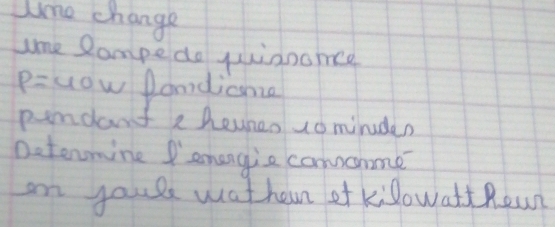 Une change
une lampe de puissance
P=40W fonctionne
pendant 2 heures 10 minutes
Determine l'energie consommé
en joule watheur et kilowattheur